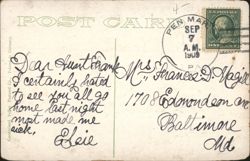 POST CARD
PEN MAR
SEP
7
A.M.
1909
Dear Aunt Frank,
I certainly hated
to see you all go
home last night
most made me
sick.
Elsie
Mrs. Frances D. Nagle
1708 Edmondson av
Baltimore
Md.